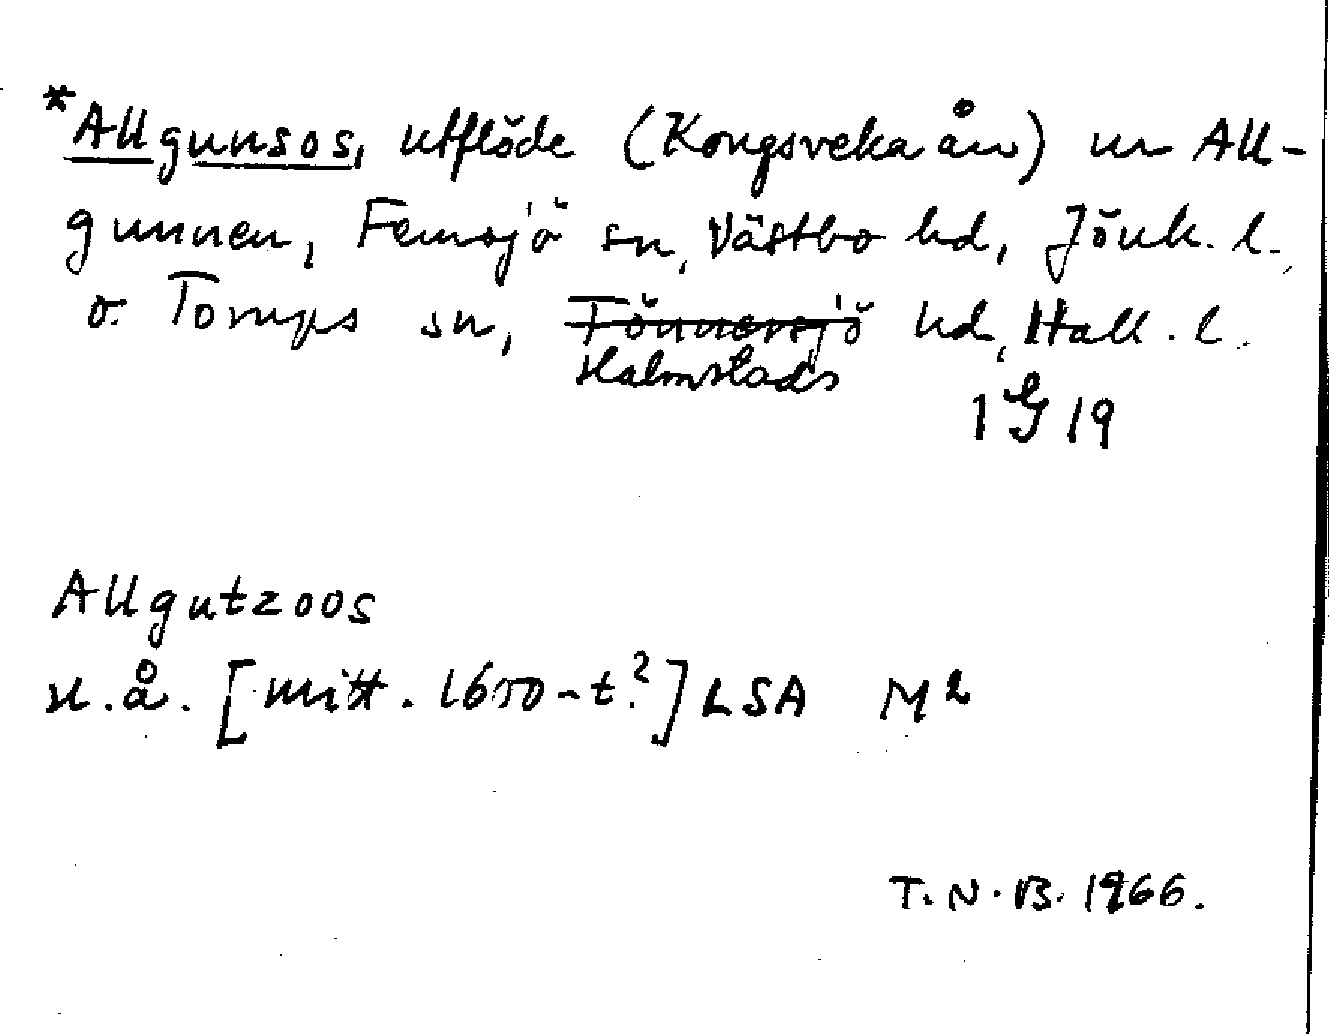 *Allgunsos, utflöde (Kongsveka ån) ur All-
gunnen, Femsjö sn, Västbo hd, Jönk. l.,
o. Torups sn, Tönnersjö hd, Hall. l.
Halmstads
1 G 19
Allgutzoos
u.å. [mitt. 1600-t.?] LSA M2
T. N. B. 1966.